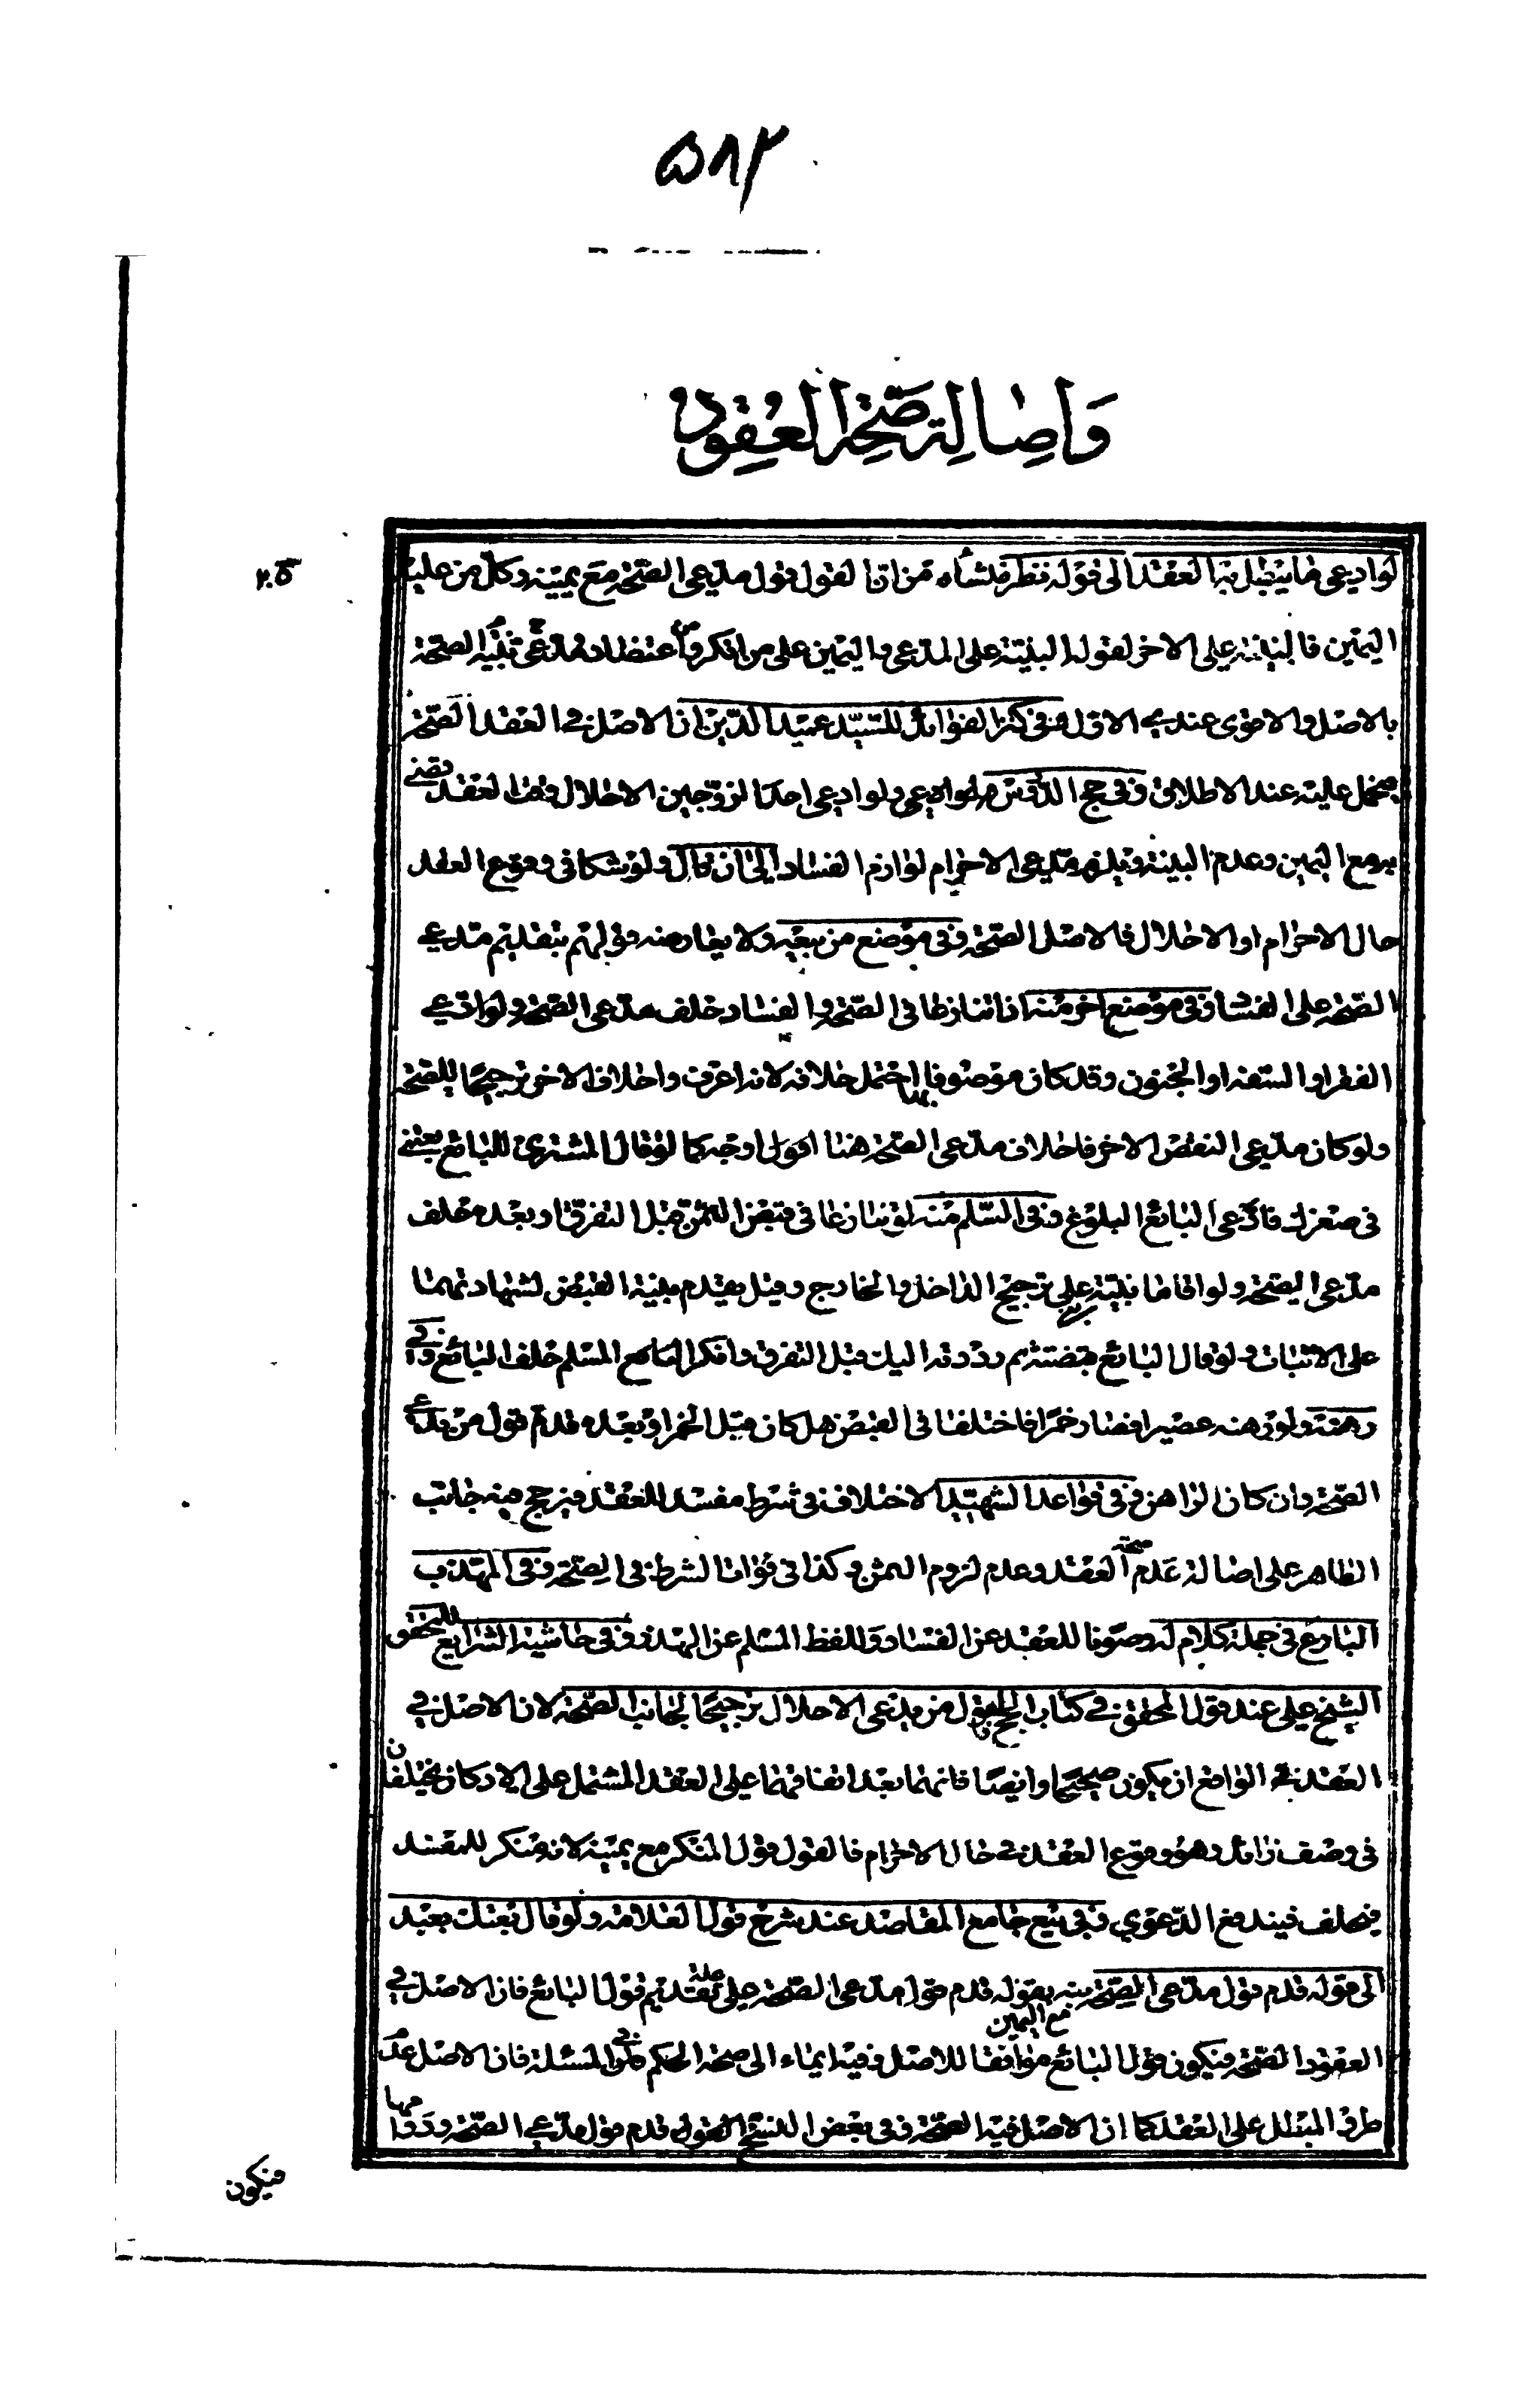 ۵۸۳
واصالة صحة العقود
لو ادعى ما يبطل به العقد الى قوله نظر منشاه من ان القول قول مدعى الصحة مع يمينه وكل من عليه
اليمين فالبينة على الاخر لقوله البينة على المدعى واليمين على من انكر ومن اعتضاد مدعى الصحة
بالاصل والاقوى عندى الاول وفى كنز الفوائد للسيد عميد الدين ان الاصل فى العقد الصحة
فيحمل عليه عند الاطلاق وفى حج الدروس ولو ادعى احد الزوجين الاحلال وقت العقد
مع اليمين وعدم البينة ويلزم مدعى الاحرام لوازم الفساد الى ان قال ولو شكا فى وقوع العقد
حال الاحرام او الاحلال فالاصل الصحة وفى موضع من بيعه ولا يعارضه قولهم بتقديم مدعى
الصحة على الفساد وفى موضع اخر منه اذا تنازعا فى الصحة والفساد حلف مدعى الصحة ولو ادعى
او السفه او الجنون وقد كان موصوفا بها احتمل حلافه لانه اعرف واحلاف الاخر ترجيحا للصحة
ولو كان مدعى النقص الاخر فاحلاف مدعى الصحة هنا اقوى اوجه كما لو قال المشترى للبائع بعتنى
فى صغرك فادعى البائع البلوغ وفى السلم منه لو تنازعا فى قبض الثمن قبل التفرق او بعده حلف
مدعى الصحة ولو اقاما بينة على ترجيح الداخل والخارج وقيل يقدم بينة القبض لشهادتهما
على الاثبات ولو قال البائع قبضته ثم رددته اليك قبل التفرق وانكر السامع المسلم حلف البائع وفى
رهنه ولو رهنه عصيرا فصار خمرا فاختلفا فى القبض هل كان قبل الخمر او بعده قدم قول من يدعى
الصحة وان كان الراهن وفى قواعد الشهيد الاختلاف فى شرط مفسد للعقد فيرجح فيه جانب
الظاهر على اصالة عدم صحة العقد وعدم لزوم الثمن وكذا فى فوات الشرط فى الصحة وفى المهذب
البارع فى جملة كلام له وصونا للعقد عن الفساد واللفظ المسلم عن الهذر وفى حاشية الشرايع للمحقق
الشيخ على عند قول المحقق فى كتاب الحج فالقول من يدعى الاحلال ترجيحا لجانب الصحة لان الاصل فى
العقد الواقع ان يكون صحيحا وايضا فانهما بعد اتفاقهما على العقد المشتمل على الاركان يختلفان
فى وصف زائد وهو وقوع العقد فى حال الاحرام فالقول قول المنكر مع يمينه لانه منكر للمفسد
فيحلف فيندفع الدعوى وفى بيع جامع المقاصد عند شرح قول العلامة ولو قال بعتك بعبد
الى قوله قدم قول مدعى الصحة نبه بقوله قدم قول مدعى الصحة على علة تقديم قول البائع فان الاصل فى
العقود الصحة فيكون قول البائع مع اليمين موافقا للاصل وفيه ايماء الى صحة الحكم فى المسئلة فان الاصل عدم
طرو المبطل على العقد كما ان الاصل فيه الصحة وفى بعض النسخ القول قدم قول مدعى الصحة
فيكون